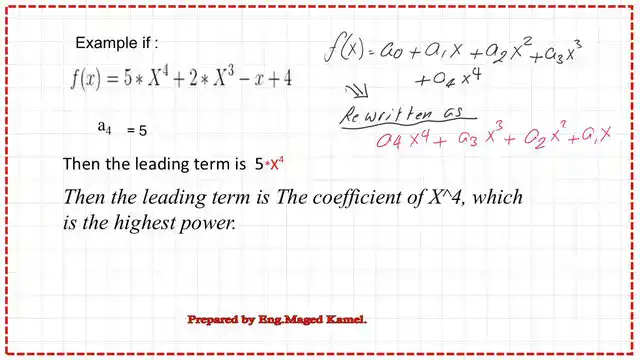 Example if :
f(x) = 5 * X^4 + 2 * X^3 − x + 4
a₄ = 5
Then the leading term is 5*X^4
Then the leading term is The coefficient of X^4, which
is the highest power.
f(x) = a0 + a1x + a2x² + a3x³
+ a4x⁴
Rewritten as
a4x⁴ + a3x³ + a2x² + a1x
Prepared by Eng.Maged Kamel.